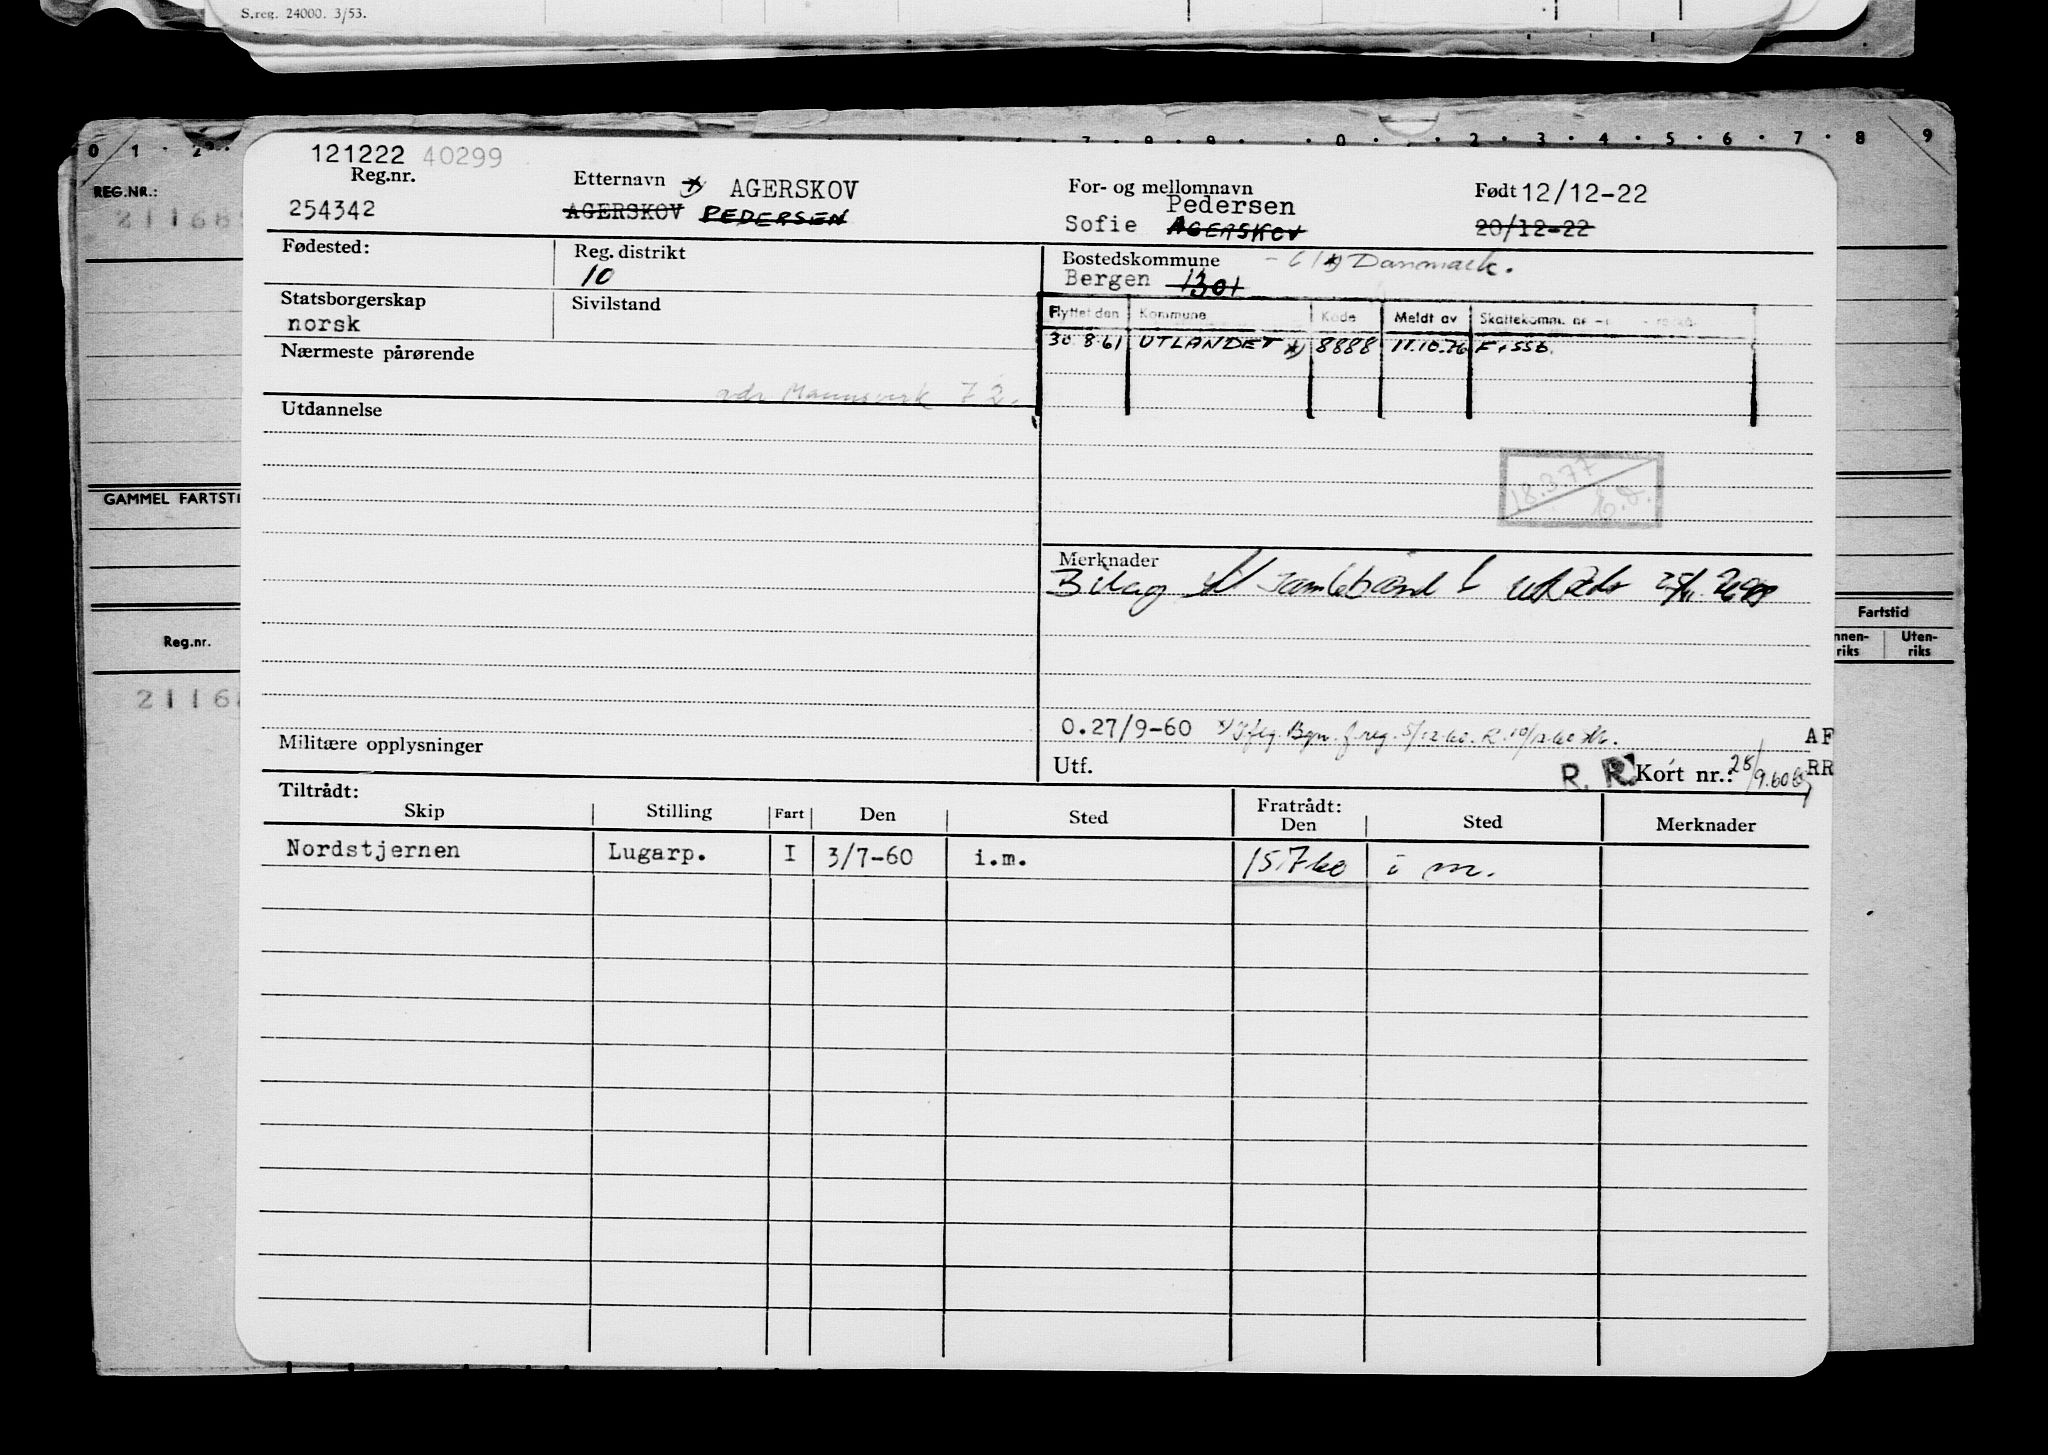 S.reg. 24000. 3/53.
0 1 2 7 8 9 0 2 3 4 5 6 7 8 9
REG.NR.:
GAMMEL FARTSTI
Reg.nr.
2116
Fartstid
nnen-
riks
Uten-
riks
121222 40299
Reg.nr.
254342
Etternavn *) AGERSKOV
AGERSKOV PEDERSEN
For- og mellomnavn
Pedersen
Sofie AGERSKOV
Født 12/12-22
20/12-22
Fødested:
Reg. distrikt
10
Bostedskommune *) Danmark.
Bergen 1301
Statsborgerskap
norsk
Sivilstand
Flyttet den Kommune Kode Meldt av Skattekomm.
30 8.61 UTLANDET *) 8888 11.10.76 F. SSB
Nærmeste pårørende
adr Mannsverk 72.
Utdannelse
18.3.77
Merknader
Bilag til
O.27/9-60 *) Iflg. Bgn. f.reg. 5/12-60.
Militære opplysninger
Utf.
R. R. Kort nr.: 28/9.60
AF
RR
Tiltrådt:
Skip Stilling Fart Den Sted
Fratrådt:
Den Sted Merknader
Nordstjernen Lugarp. I 3/7-60 i.m. 15.7 60 i m.